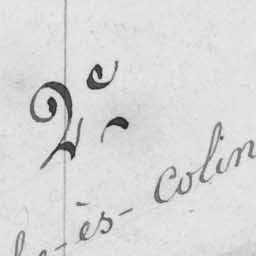 2e
-ès-colin